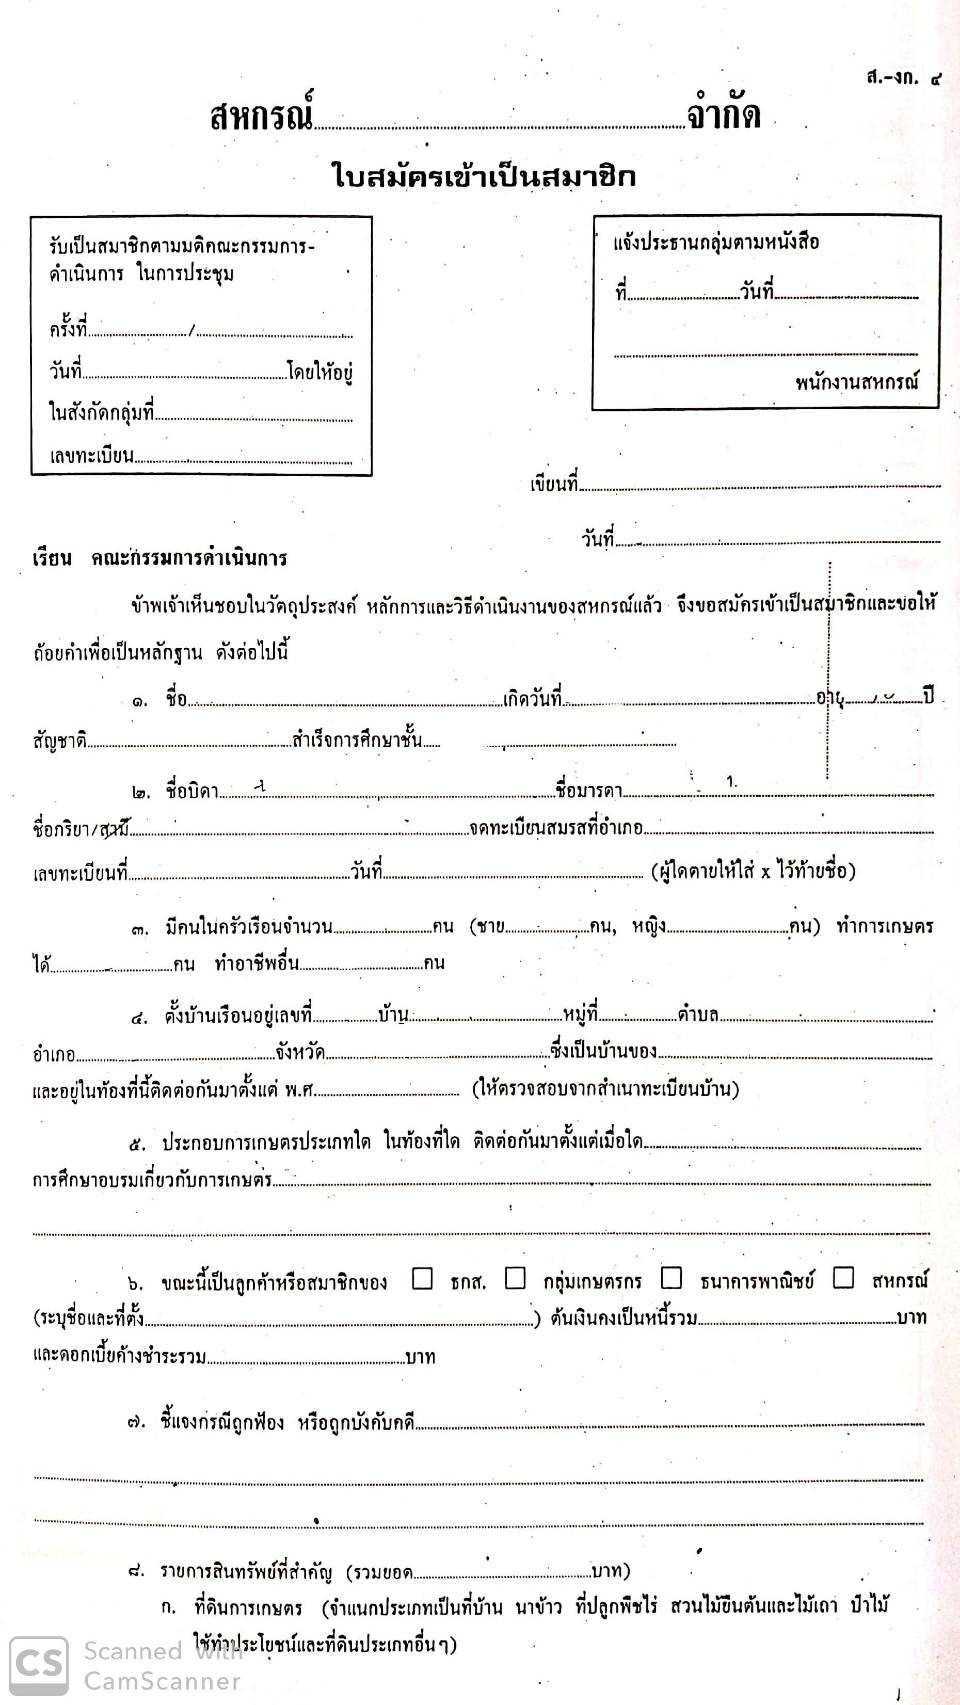 ส.-งก. ๔
สหกรณ์..........จำกัด
ใบสมัครเข้าเป็นสมาชิก
รับเป็นสมาชิกตามมติคณะกรรมการ-
ดำเนินการ ในการประชุม
ครั้งที่........../..........
วันที่..........โดยให้อยู่
ในสังกัดกลุ่มที่..........
เลขทะเบียน..........
แจ้งประธานกลุ่มตามหนังสือ
ที่..........วันที่..........
..........
พนักงานสหกรณ์
เขียนที่..........
วันที่..........
เรียน คณะกรรมการดำเนินการ
ข้าพเจ้าเห็นชอบในวัตถุประสงค์ หลักการและวิธีดำเนินงานของสหกรณ์แล้ว จึงขอสมัครเข้าเป็นสมาชิกและขอให้
ถ้อยคำเพื่อเป็นหลักฐาน ดังต่อไปนี้
๑. ชื่อ..........เกิดวันที่..........อายุ..........ปี
สัญชาติ..........สำเร็จการศึกษาชั้น..........
๒. ชื่อบิดา..........ชื่อมารดา..........
ชื่อภริยา/สามี..........จดทะเบียนสมรสที่อำเภอ..........
เลขทะเบียนที่..........วันที่.......... (ผู้ใดตายให้ใส่ x ไว้ท้ายชื่อ)
๓. มีคนในครัวเรือนจำนวน..........คน (ชาย..........คน, หญิง..........คน) ทำการเกษตร
ได้..........คน ทำอาชีพอื่น..........คน
๔. ตั้งบ้านเรือนอยู่เลขที่..........บ้าน..........หมู่ที่..........ตำบล..........
อำเภอ..........จังหวัด..........ซึ่งเป็นบ้านของ..........
และอยู่ในท้องที่นี้ติดต่อกันมาตั้งแต่ พ.ศ........... (ให้ตรวจสอบจากสำเนาทะเบียนบ้าน)
๕. ประกอบการเกษตรประเภทใด ในท้องที่ใด ติดต่อกันมาตั้งแต่เมื่อใด..........
การศึกษาอบรมเกี่ยวกับการเกษตร..........
..........
๖. ขณะนี้เป็นลูกค้าหรือสมาชิกของ ☐ ธกส. ☐ กลุ่มเกษตรกร ☐ ธนาคารพาณิชย์ ☐ สหกรณ์
(ระบุชื่อและที่ตั้ง..........) ต้นเงินคงเป็นหนี้รวม..........บาท
และดอกเบี้ยค้างชำระรวม..........บาท
๗. ชี้แจงกรณีถูกฟ้อง หรือถูกบังคับคดี..........
..........
..........
๘. รายการสินทรัพย์ที่สำคัญ (รวมยอด..........บาท)
ก. ที่ดินการเกษตร (จำแนกประเภทเป็นที่บ้าน นาข้าว ที่ปลูกพืชไร่ สวนไม้ยืนต้นและไม้เถา ป่าไม้
ใช้ทำประโยชน์และที่ดินประเภทอื่นๆ)
CS Scanned with
CamScanner